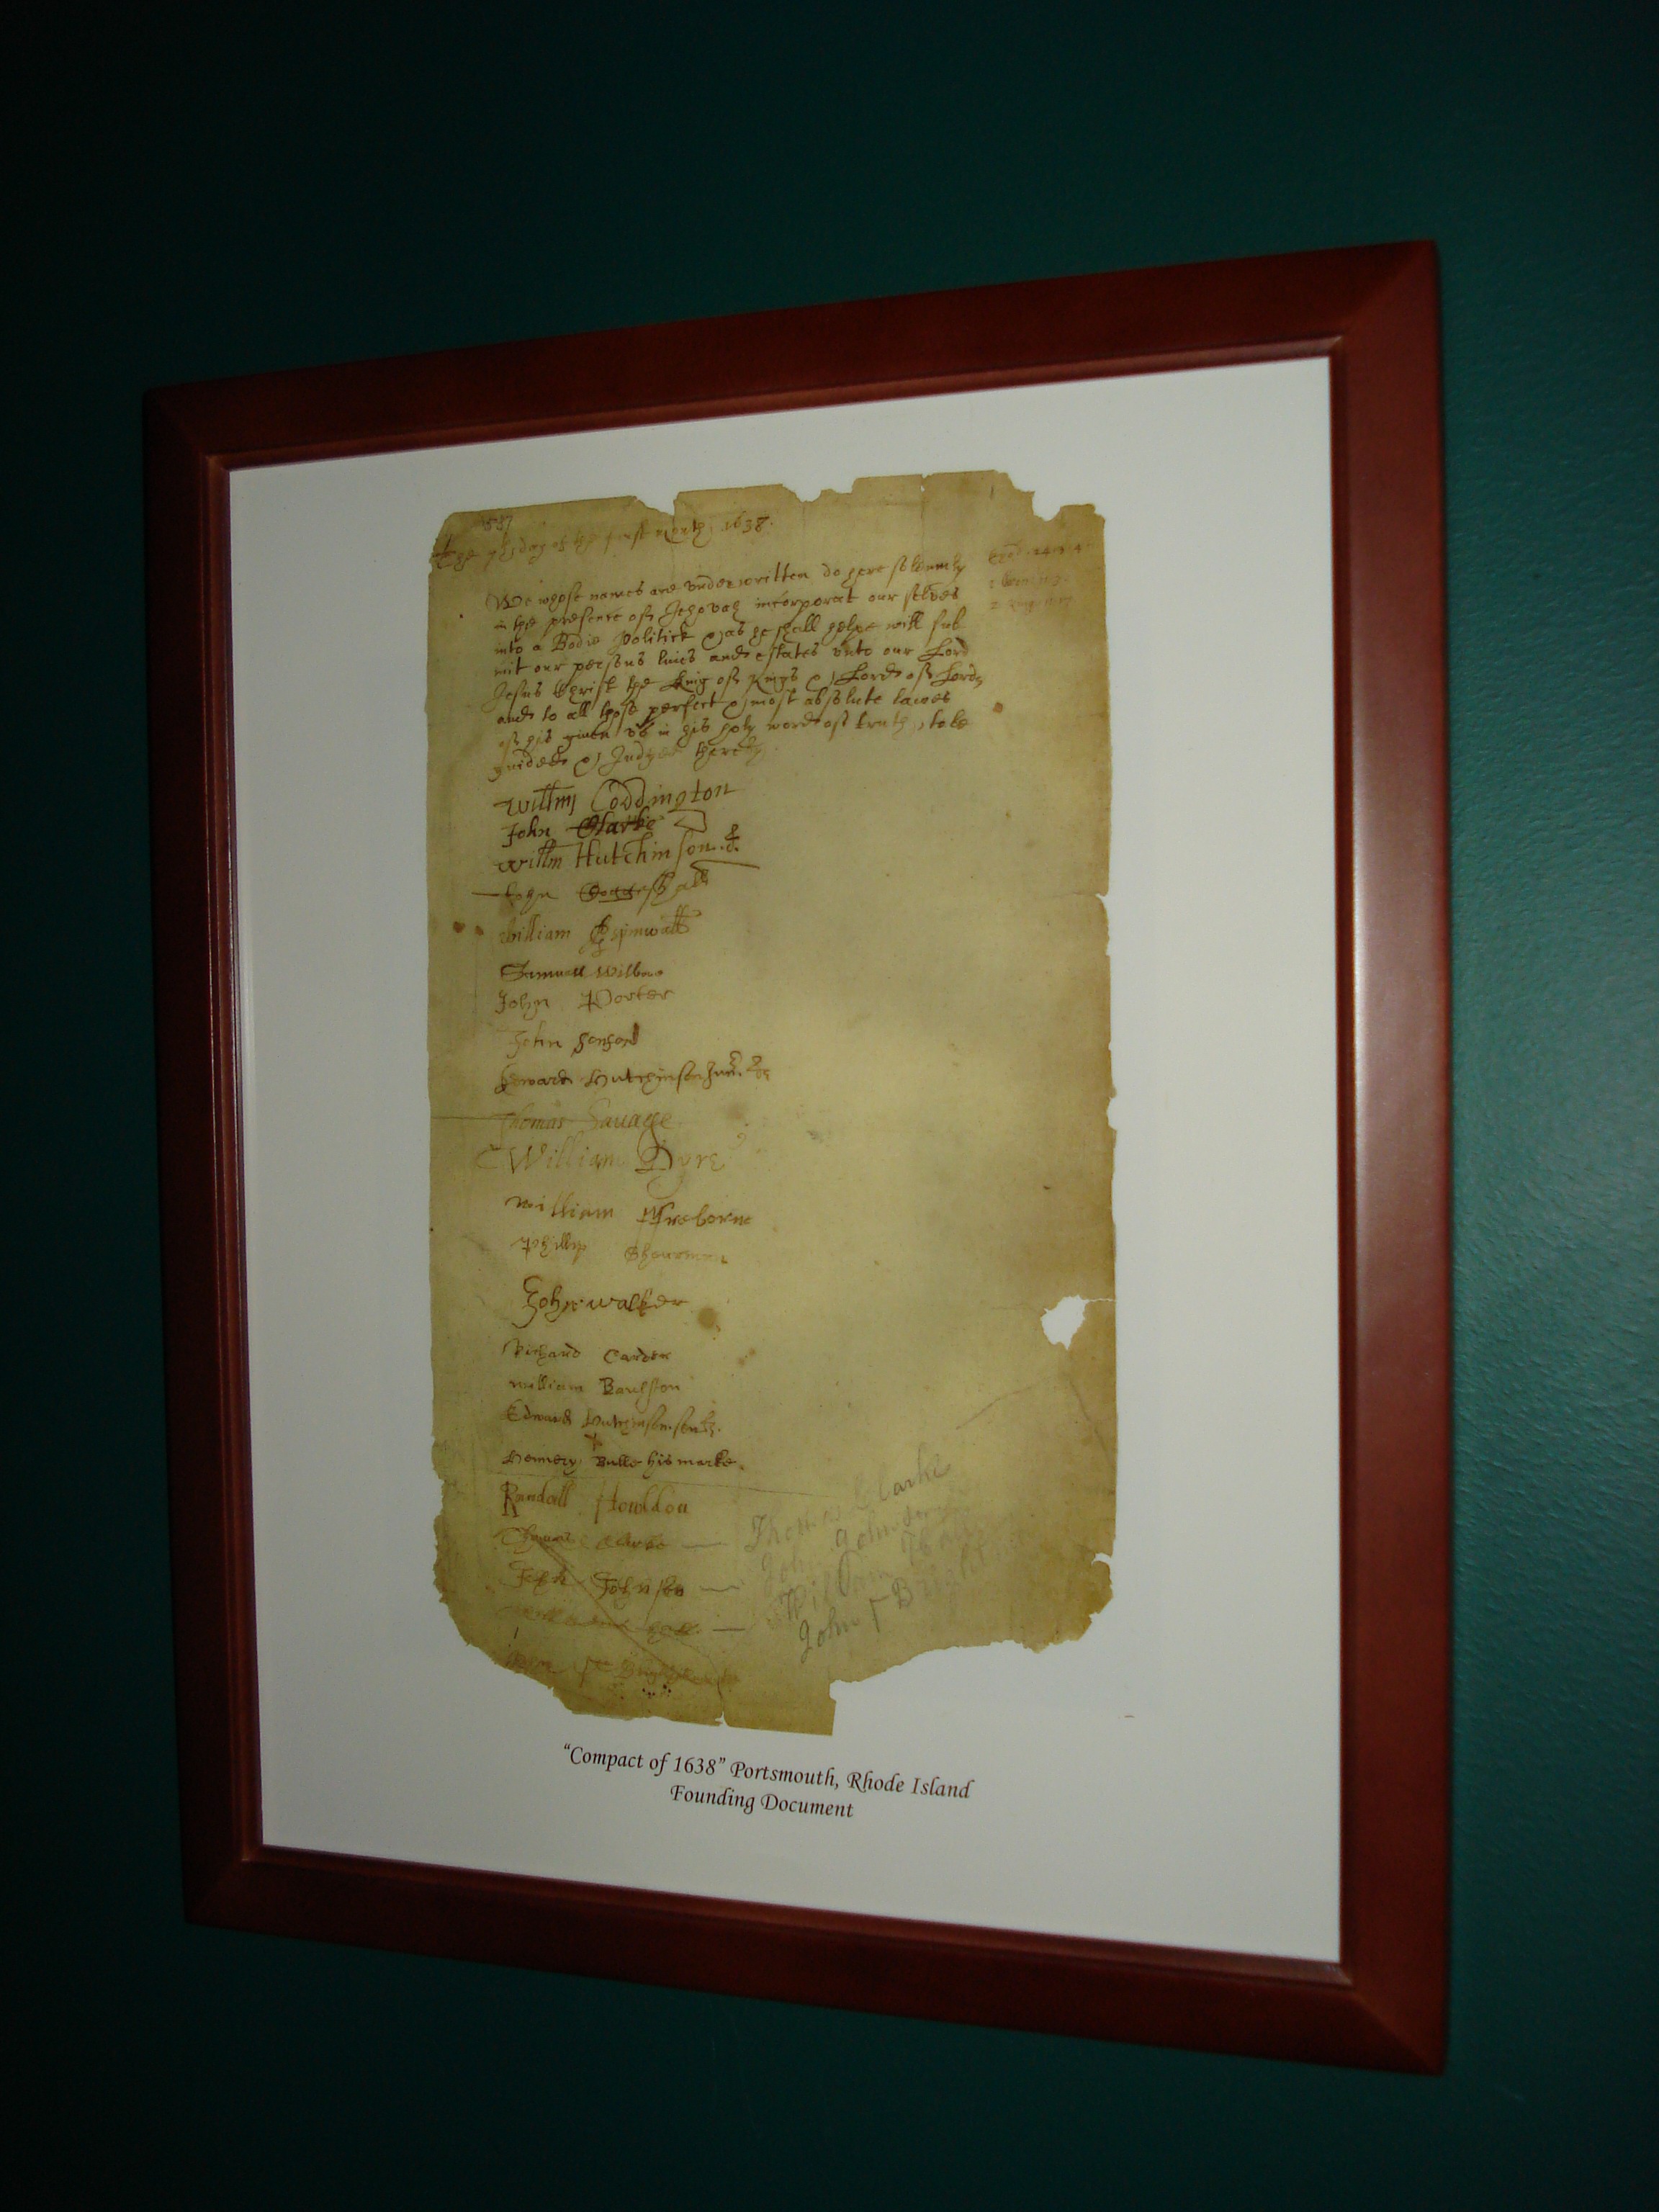 The 7th day of the first month, 1638.
We whose names are underwritten do here solemnly
in the presence of Jehovah incorporat our selves
into a Bodie Politick & as he shall helpe will sub
mit our persons lives and estates unto our Lord
Jesus Christ the King of Kings & Lord of Lords
and to all those perfect & most absolute lawes
of his given us in his holy word of truth, to be
guided & Judged thereby
Exod. 24. 3. 4
Willm Coddington
John Clarke
Willm Hutchinson
John Coggeshall
William Aspinwall
Samuell Wilbore
John Porter
John Sanford
Edward Hutchinson Junr.
Thomas Savage
William Dyre
William Freborne
Phillip Shearman
John walker
Richard Carder
William Baulston
Edward Hutchinson senr.
Hennery Bulle his marke.
Randall Howldon
Thomas Clarke — Thomas Clarke
John Johnson — John Johnson
William Hall — William Hall
John Bright
“Compact of 1638” Portsmouth, Rhode Island
Founding Document